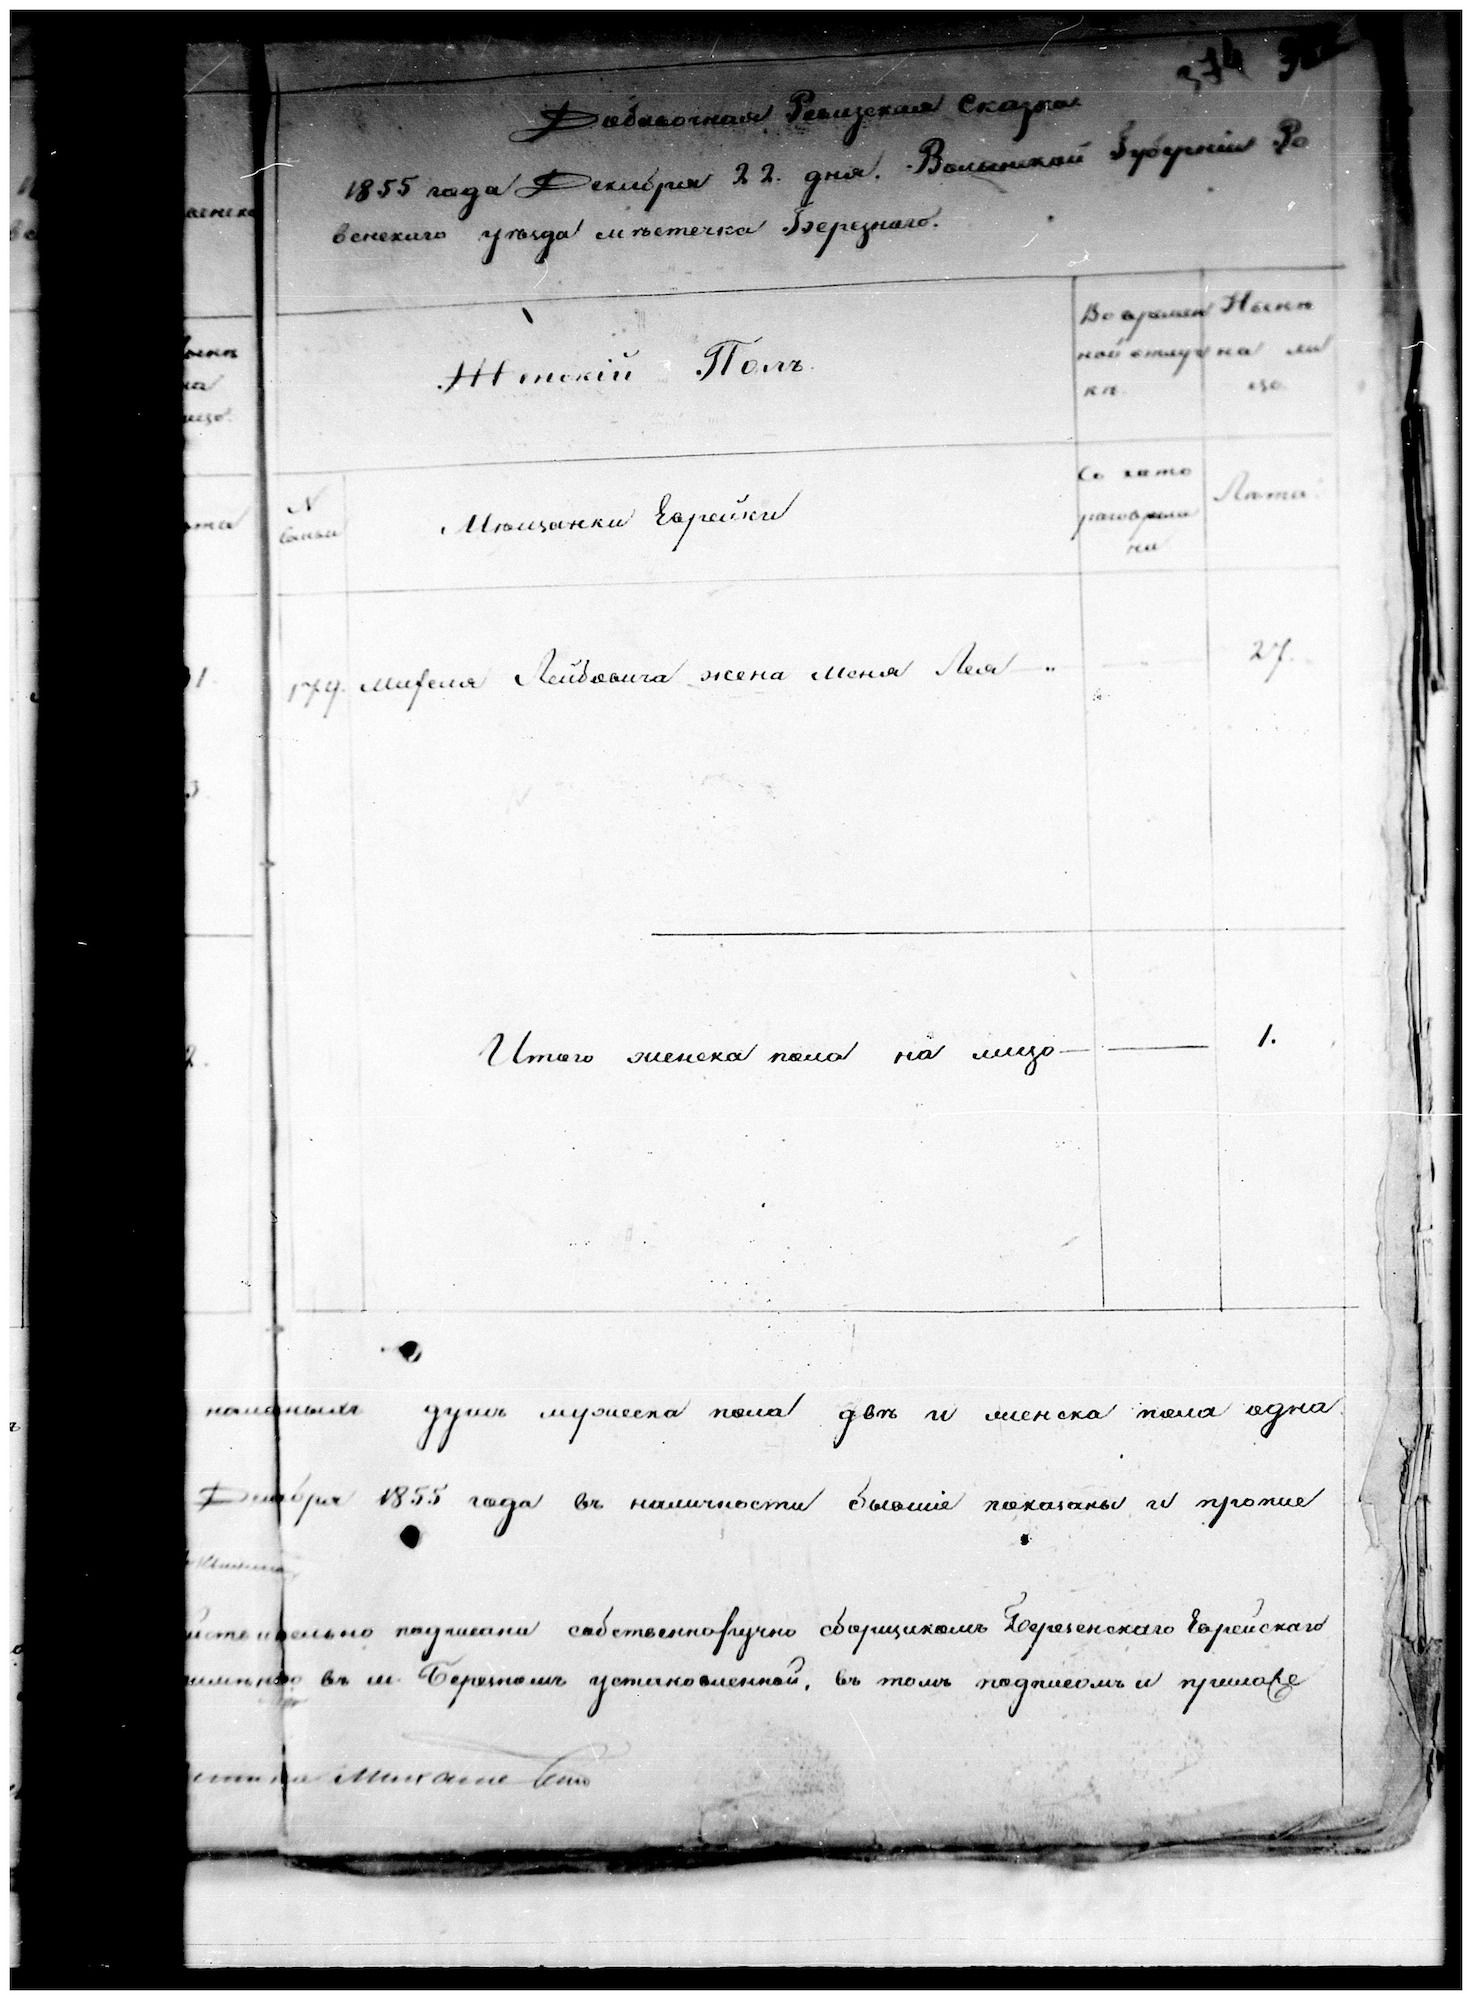 374
Добавочная Ревизская Сказка
1855 года Декабря 22. дня. Волынской Губерніи Ро
венскаго уѣзда мѣстечка Березнаго.
Женскій Полъ.
Во времен
ной отлуч
кѣ.
Нынѣ
на ли
цо.
N
семьи
Мѣщанки Еврейки
Съ кото
раго време
ни
Лѣта.
179. Лейбовича жена Меня Лея — „
27.
Итого женска пола на лицо — 1.
душъ мужеска пола двѣ и женска пола одна
Декабря 1855 года въ наличности бывшіе показаны и пропис
подписана собственноручно сборщикомъ Березенскаго Еврейскаго
въ м. Березномъ установленной, въ томъ подписомъ и приложе